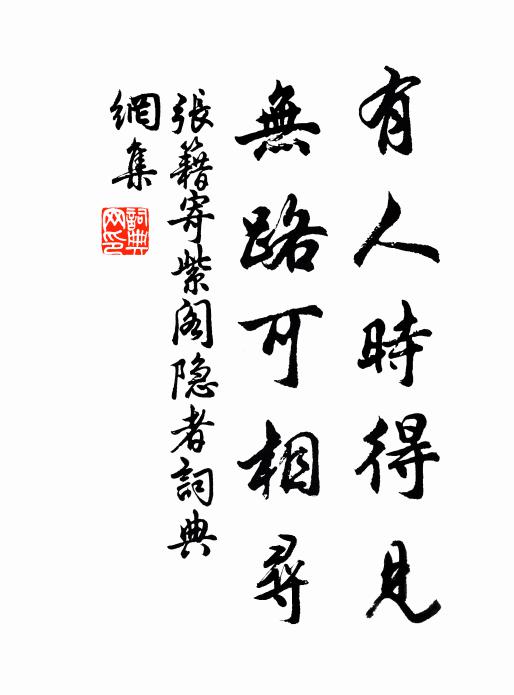 有人時得見
無路可相尋
張籍寄紫阁隐者詞典
網集
詞典
网印